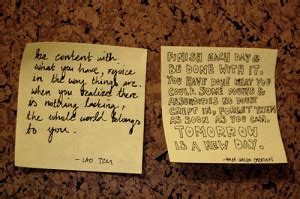 be content with
what you have, rejoice
in the way things are.
when you realized there
is nothing lacking,
the whole world belongs
to you.
- LAO TZU
FINISH EACH DAY &
BE DONE WITH IT.
YOU HAVE DONE WHAT YOU
COULD SOME DOUBTS &
ABSURDITIES NO DOUBT
CREPT IN, FORGET THEM
AS SOON AS YOU CAN.
TOMORROW
IS A NEW DAY.
- RALPH WALDO EMERSON